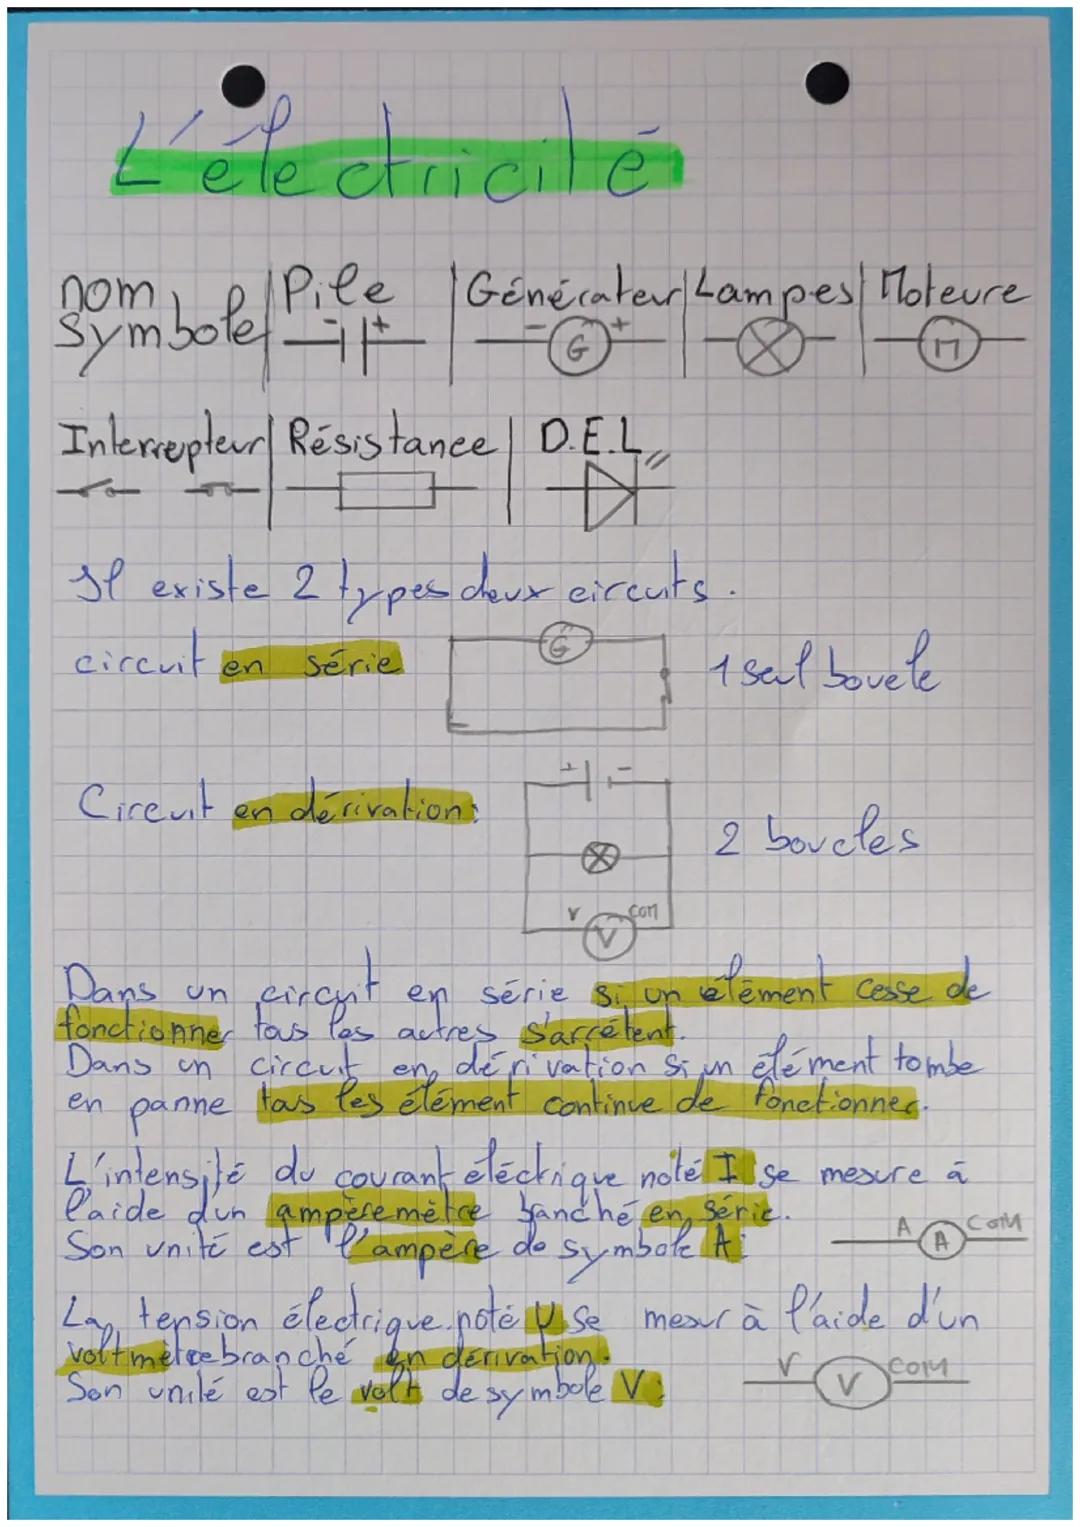 L'électricité
nom Pile Générateur Lampes Moteure
Symbole - + - G + M
Interrepteur Résistance D.E.L
Il existe 2 types deux circuits.
circuit en série G 1 seul boucle
+ -
Circuit en dérivation: 2 boucles
V V COM
Dans un circuit en série si un élément cesse de
fonctionner tous les autres s'arrêtent.
Dans un circuit en dérivation si un élément tombe
en panne tous les élément continue de fonctionner.
L'intensité du courant éléctrique noté I se mesure à
l'aide dun ampèremètre banché en série.
Son unité est l'ampère de symbole A: A A COM
La tension électrique noté U se mesur à l'aide d'un
voltmètre branché en dérivation.
Son unité est le volt de symbole V: V V COM